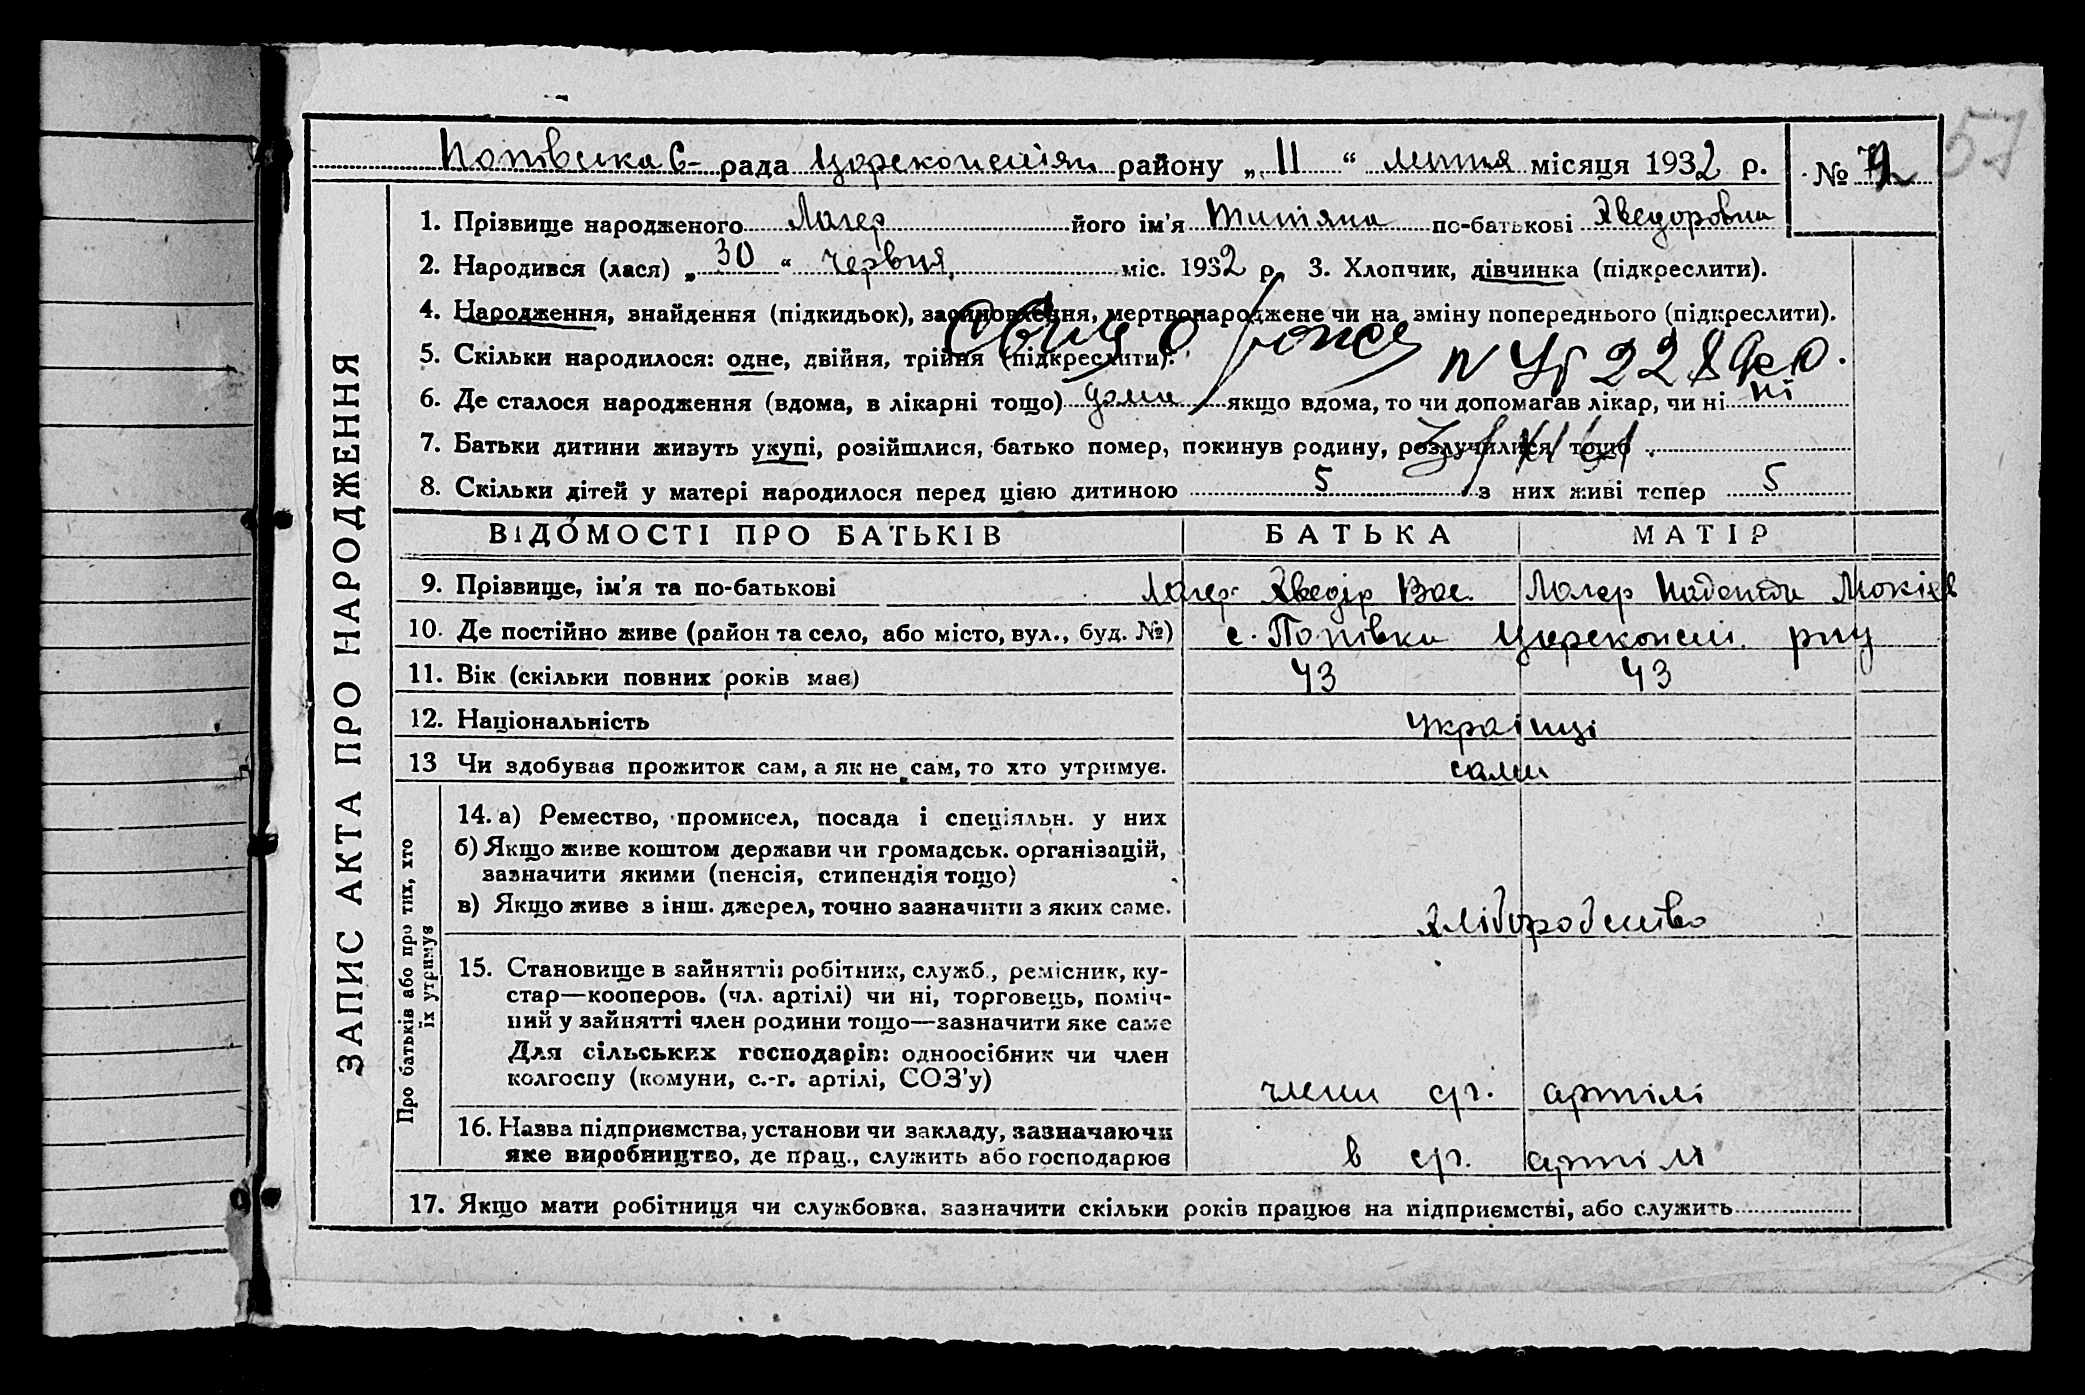 Попівська С- рада Царекопський району „ 11 “ липня місяця 1932 р. № 72
57
ЗАПИС АКТА ПРО НАРОДЖЕННЯ
1. Прізвище народженого Лагер його ім'я Титяна по-батькові Хведоровна
2. Народився (лася) „ 30 “ червня міс. 1932 р. 3. Хлопчик, дівчинка (підкреслити).
4. Народження, знайдення (підкидьок), засиновлення, мертвонароджене чи на зміну попереднього (підкреслити).
5. Скільки народилося: одне, двійня, трійня (підкреслити).
6. Де сталося народження (вдома, в лікарні тощо) дома якщо вдома, то чи допомагав лікар, чи ні ні
7. Батьки дитини живуть укупі, розійшлися, батько помер, покинув родину, розлучилися, тощо
8. Скільки дітей у матері народилося перед цією дитиною 5 з них живі тепер 5
ВІДОМОСТІ ПРО БАТЬКІВ БАТЬКА МАТІР
9. Прізвище, ім'я та по-батькові Лагер Хведір Вас. Лагер Надежда Мокіев
10. Де постійно живе (район та село, або місто, вул., буд. №) с. Попівка Царекопсь. рну
11. Вік (скільки повних років має) 43 43
12. Національність українці
13 Чи здобував прожиток сам, а як не сам, то хто утримує. сами
Про батьків або про тих, хто
їх утримує
14. а) Ремество, промисел, посада і спеціяльн. у них
б) Якщо живе коштом держави чи громадськ. організацій,
зазначити якими (пенсія, стипендія тощо)
в) Якщо живе з інш. джерел, точно зазначити з яких саме. хліборобство
15. Становище в зайнятті: робітник, служб., ремісник, ку-
стар—кооперов. (чл. артілі) чи ні, торговець, поміч-
ний у зайнятті член родини тощо—зазначити яке саме
Для сільських господарів: одноосібник чи член
колгоспу (комуни, с.-г. артілі, СОЗ'у) члени сг. артілі
16. Назва підприємства, установи чи закладу, зазначаючи
яке виробництво, де прац., служить або господарює в сг. артілі
17. Якщо мати робітниця чи службовка, зазначити скільки років працює на підприємстві, або служить